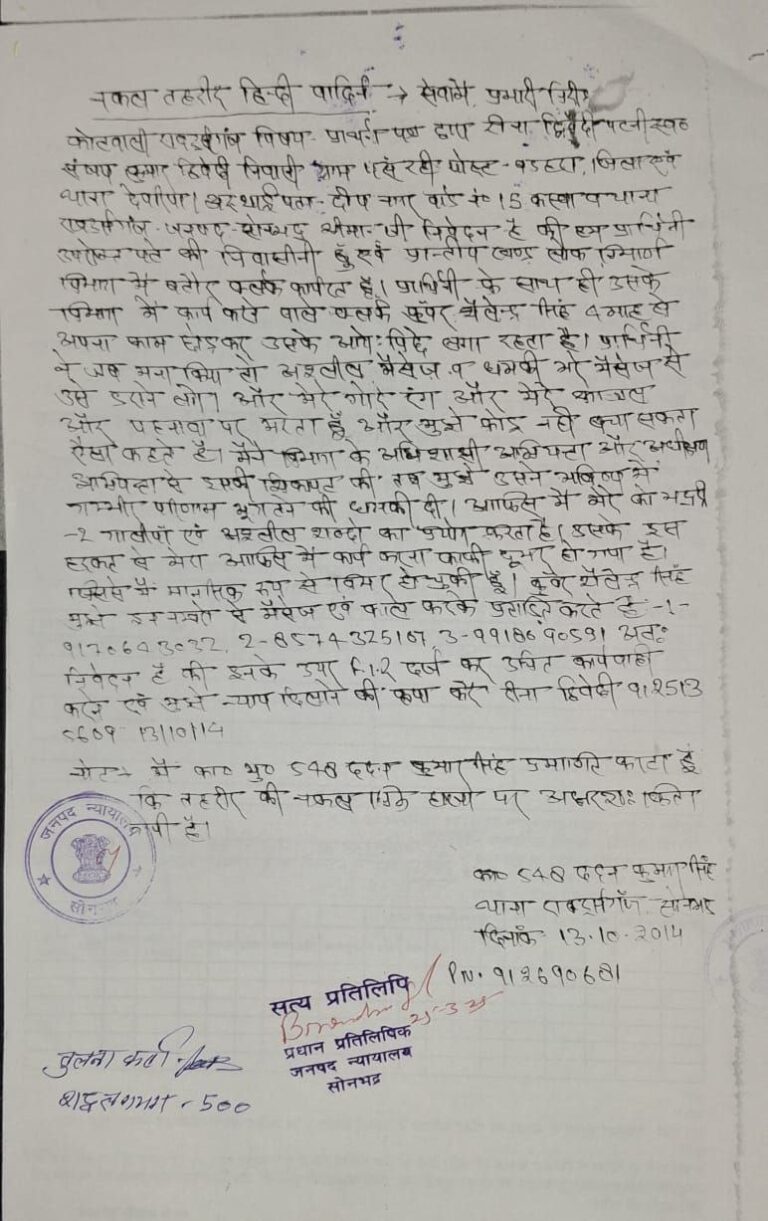 नकल तहरीर हिन्दी वादिनी → सेवामे प्रभारी निरीक्षक
कोतवाली राबर्ट्सगंज विषय- प्रार्थना पत्र द्वारा रीना द्विवेदी पत्नी स्व०
संजय कुमार द्विवेदी निवासी ग्राम पोस्ट- बडहरा, जिला एवं
थाना देवरिया। अस्थाई पता- दीप नगर वार्ड नं० 15 कस्बा व थाना
राबर्ट्सगंज- जनपद- सोनभद्र श्रीमान जी निवेदन है की हम प्रार्थिनी
उपरोक्त पते की निवासीनी हूँ एवं प्रान्तीय खण्ड लोक निर्माण
विभाग में बतौर क्लर्क कार्यरत है। प्रार्थिनी के साथ ही उसके
विभाग में कार्य करने वाले क्लर्क कुंवर शैलेन्द्र सिंह 4 माह से
अपना काम छोडकर उसके आगे पिछे लगा रहता है। प्रार्थिनी
ने जब मना किया तो अश्लील मैसेज व धमकी भरे मैसेज से
उसे डराने लगे। और मेरे गोरे रंग और मेरे काजल
और पहनावा पर मरता हूँ और मुझे कोई नही बचा सकता
ऐसा कहते है। मैने विभाग के अधिशासी अभियन्ता और अधीक्षण
अभियन्ता से इसकी शिकायत की तब मुझे उसने भविष्य में
गम्भीर परिणाम भुगतने की धमकी दी। आफिस में मेरे को भद्दी
-2 गालीयाँ एवं अश्लील शब्दो का प्रयोग करता है। उसके इस
हरकत से मेरा आफिस में कार्य करना काफी दूभर हो गया है।
जिससे मै मानसिक रूप से बिमार हो चुकी हूँ। कुंवर शैलेन्द्र सिंह
मुझे इन नम्बरो से मैसेज एवं काल करके प्रताडित करते है -1-
9170643032, 2-8574325107, 3-9918690591 अतः
निवेदन है की इनके उपर F.I.R दर्ज कर उचित कार्यवाही
करने एवं मुझे न्याय दिलाने की कृपा करें रीना द्विवेदी 912513
5609 13/10/14
नोट- मै का० मु० 548 ददन कुमार सिंह प्रमाणित करता हूँ
कि तहरीर की नकल अक्षरशः किता
गयी है।
का० 548 ददन कुमार सिंह
थाना राबर्ट्सगंज, सोनभद्र
दिनांक- 13.10.2014
PN. 912690681
जनपद न्यायालय
सोनभद्र
सत्य प्रतिलिपि
25-3-25
प्रधान प्रतिलिपिक
जनपद न्यायालय
सोनभद्र
तुलना कर्ता
शब्द गणना - 500